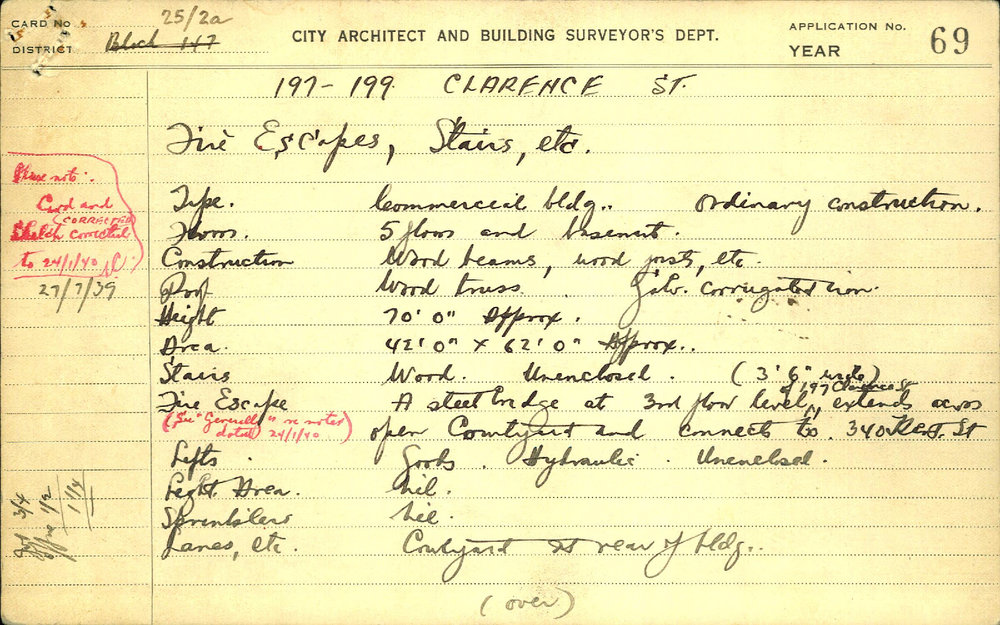 CARD No 25/2a
DISTRICT Block 147
CITY ARCHITECT AND BUILDING SURVEYOR'S DEPT.
APPLICATION No.
YEAR
69
197-199 CLARENCE ST.
Fire Escapes, Stairs, etc.
Please note:
Card and
CORRECTED
Sketch corrected
to 24/1/40
27/7/39
Type. Commercial bldg.. Ordinary construction.
Floors. 5 floors and basement.
Construction Wood beams, wood joists, etc.
Roof Wood truss. Galv. corrugated iron.
Height 70' 0" Approx.
Area. 42' 0" x 62' 0" Approx..
Stairs Wood. Unenclosed. (3' 6" wide)
of 197 Clarence St
Fire Escape A steel bridge at 3rd floor level, extends across
(See "Generally" re notes
dated 24/1/40)
open Courtyard and connects to 340 Kent St
Lifts Goods. Hydraulic. Unenclosed.
Light Area. Nil.
Sprinklers Nil.
Lanes, etc. Courtyard at rear of bldg..
Job 3/4
Office 1/2
1 1/4
(over)